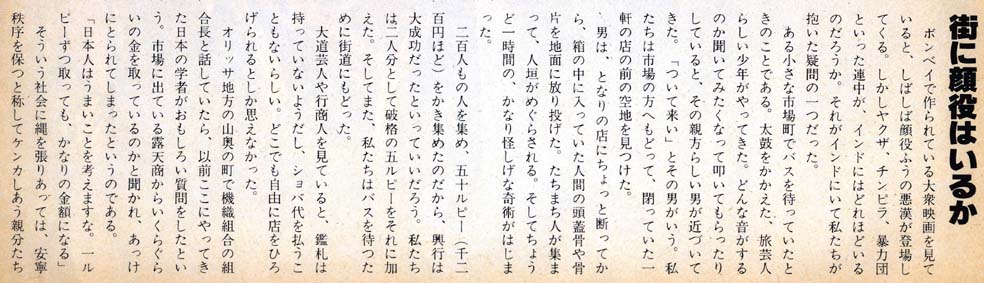 街に顔役はいるか
ボンベイで作られている大衆映画を見て
いると、しばしば顔役ふうの悪漢が登場し
てくる。しかしヤクザ、チンピラ、暴力団
といった連中が、インドにはどれほどいる
のだろうか。それがインドにいて私たちが
抱いた疑問の一つだった。
ある小さな市場町でバスを待っていたと
きのことである。太鼓をかかえた、旅芸人
らしい少年がやってきた。どんな音がする
のか聞いてみたくなって叩いてもらったり
していると、その親方らしい男が近づいて
きた。「ついて来い」とその男がいう。私
たちは市場の方へもどって、閉っていた一
軒の店の前の空地を見つけた。
男は、となりの店にちょっと断ってか
ら、箱の中に入っていた人間の頭蓋骨や骨
片を地面に放り投げた。たちまち人が集ま
って、人垣がめぐらされる。そしてちょう
ど一時間の、かなり怪しげな奇術がはじま
った。
二百人もの人を集め、五十ルピー（千二
百円ほど）をかき集めたのだから、興行は
大成功だったといっていいだろう。私たち
は二人分として破格の五ルピーをそれに加
えた。そしてまた、私たちはバスを待つた
めに街道にもどった。
大道芸人や行商人を見ていると、鑑札は
持っていないようだし、ショバ代を払うこ
ともないらしい。どこでも自由に店をひろ
げられるとしか思えなかった。
オリッサ地方の山奥の町で機織組合の組
合長と話していたら、以前ここにやってき
た日本の学者がおもしろい質問をしたとい
う。市場に出ている露天商からいくらぐら
いの金を取っているのかと聞かれ、あっけ
にとられてしまったというのである。
「日本人はうまいことを考えますな。一ル
ピーずつ取っても、かなりの金額になる」
そういう社会に縄を張りあっては、安寧
秩序を保つと称してケンカしあう親分たち